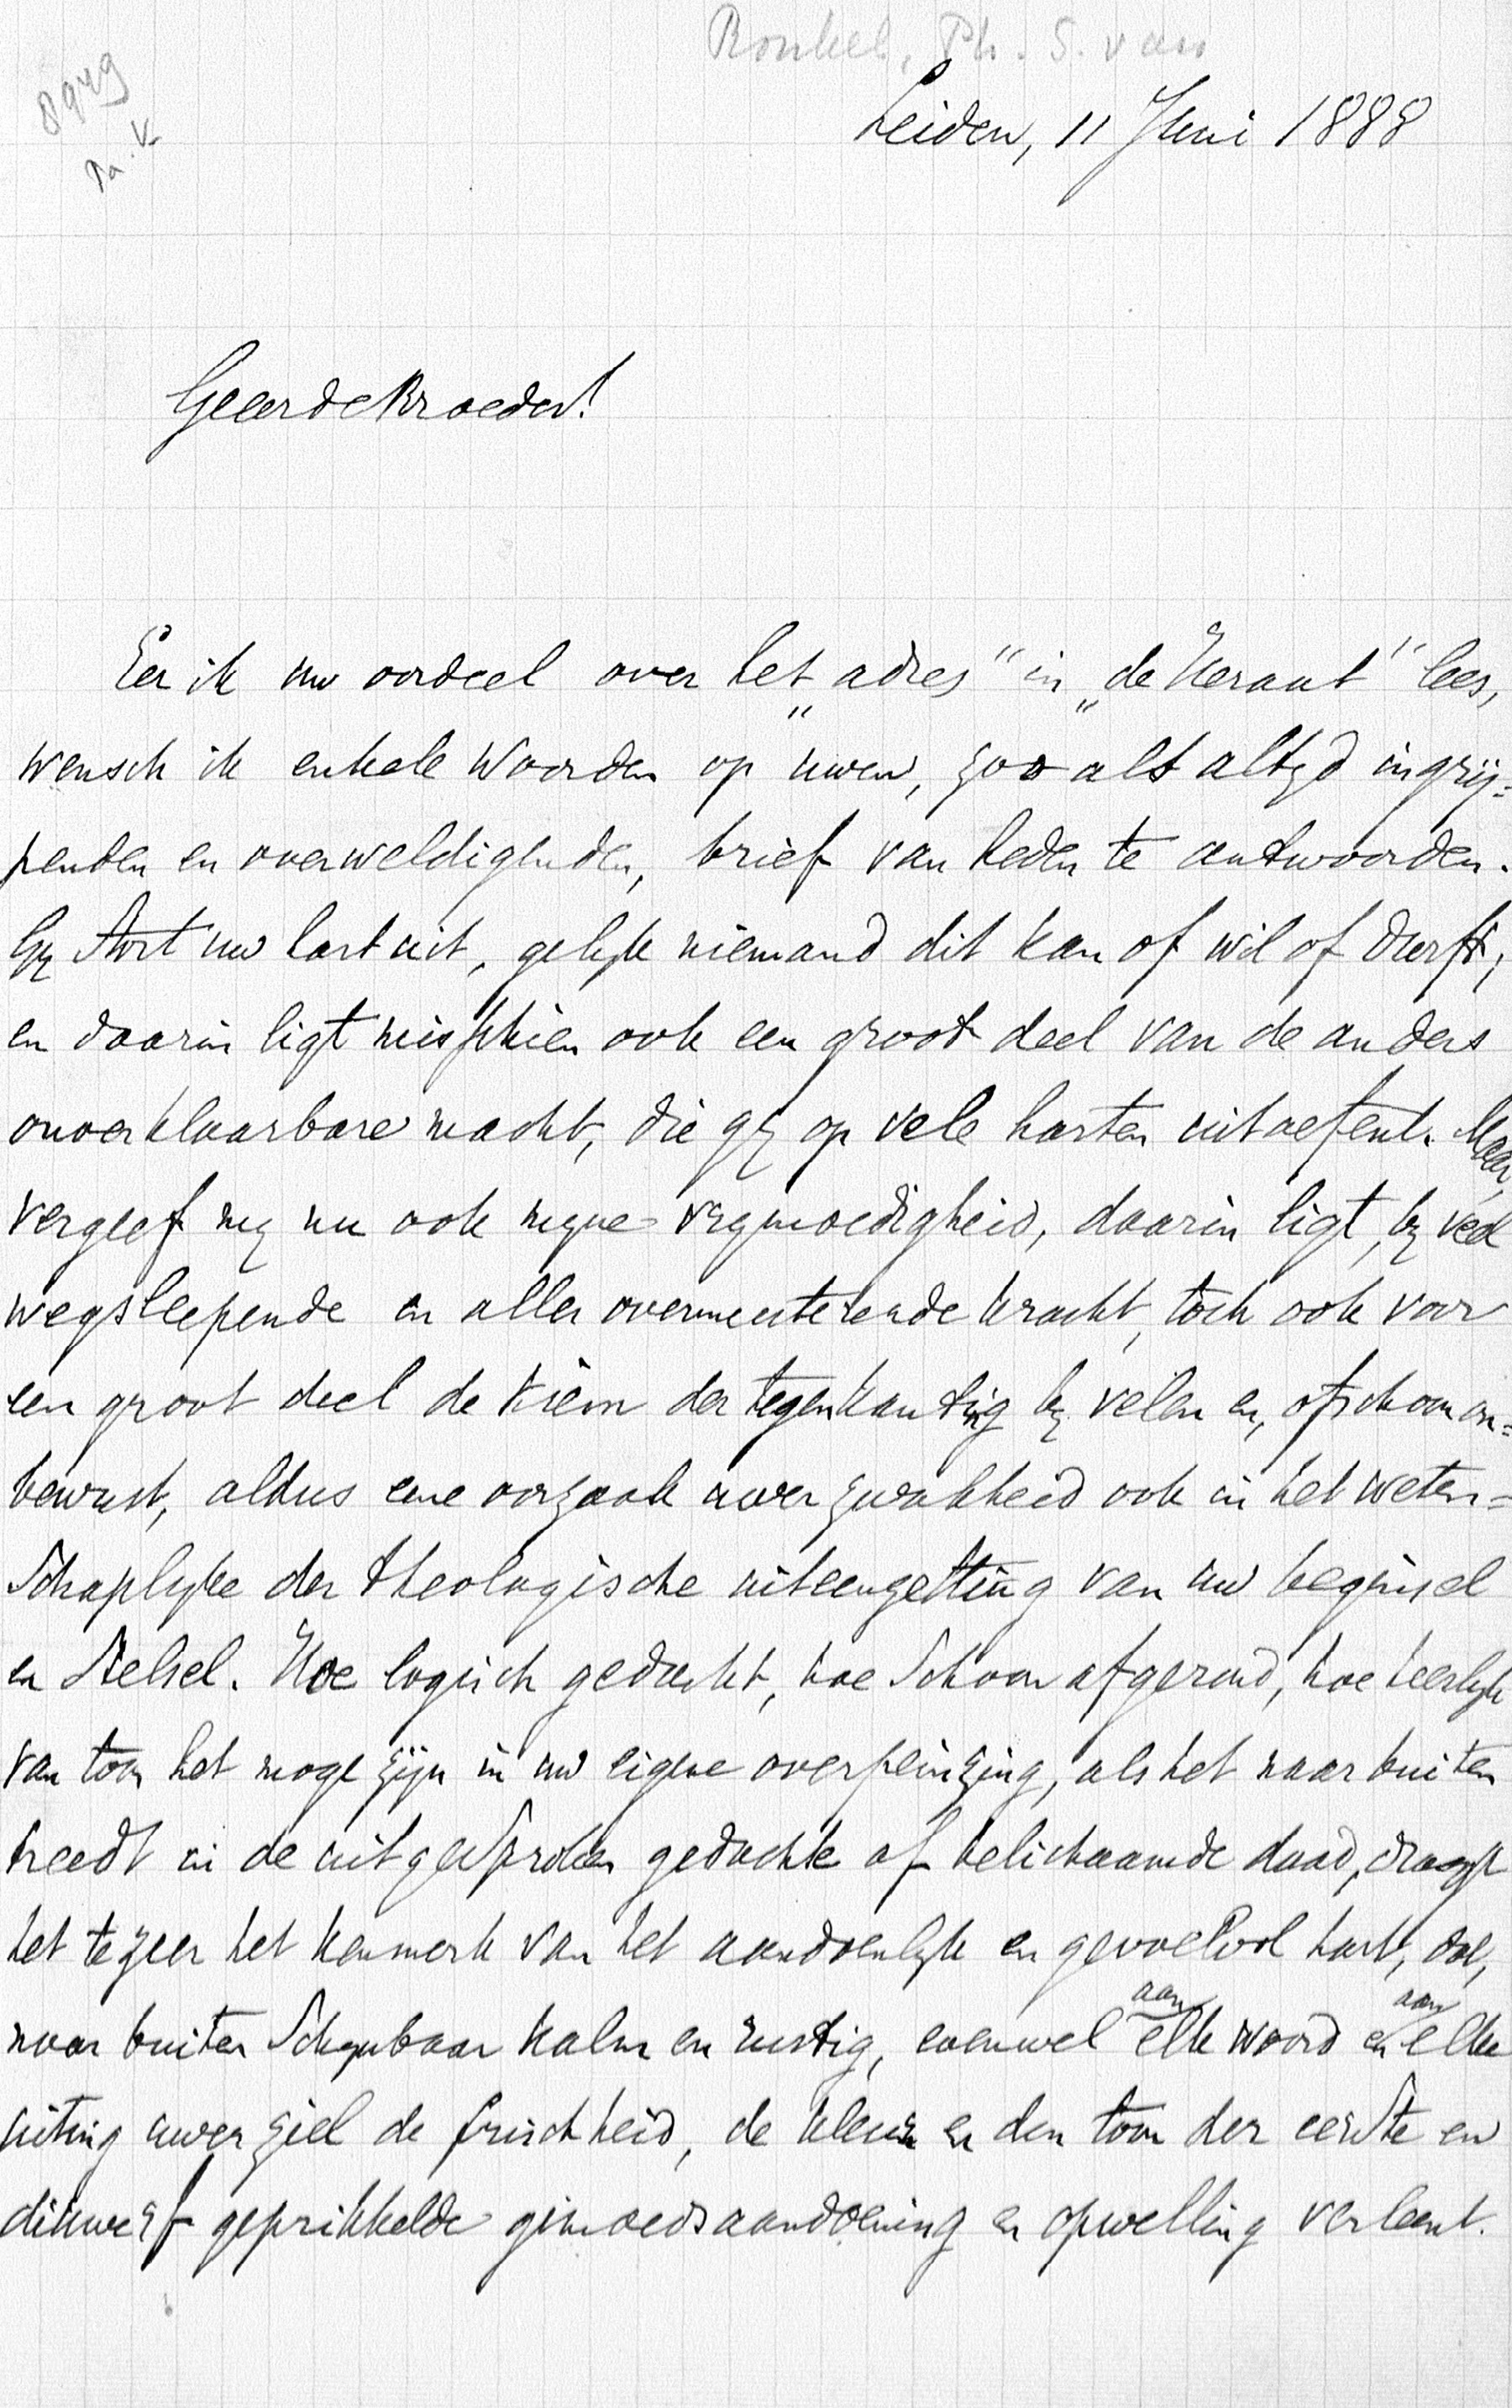 Ronkel, Ph. S. van
8949
Leiden, 11 Juni 1888
Geeerde Broeder!
Eer ik uw oordeel over het „adres” in „de Heraut” lees,
wensch ik enkele woorden op uwen, zooals altyd ingrij=
penden en overweldigenden, brief van heden te antwoorden.
Gy stort uw hart uit, gelyk niemand dit kan of wil of durft;
en daarin ligt misschien ook een groot deel van de anders
onverklaarbare macht, die gy op vele harten uitoefent. Maar,
vergeef my nu ook myne vrymoedigheid, daarin ligt, by veel
wegsleepende en aller overmeesterende kracht, toch ook voor
een groot deel de kiem der tegenkanting by velen en, ofschoon on=
bewust, aldus eene oorzaak uwer zwakheid ook in het weten=
schaplyke der theologische uiteenzetting van uw beginsel
en stelsel. Hoe logisch gedacht, hoe schoon afgerond, hoe heerlyk
van toon het moge zijn in uw eigene overpeinzing, als het naar buiten
treedt in de uitgesproken gedachte of belichaamde daad, draagt
het te zeer het kenmerk van het aandoenlyk en gevoelvol hart, dat,
naar buiten schynbaar kalm en rustig, evenwel aan elk woord en aan elke
uiting uwer ziel de frischheid, de kleur en den toon der eerste en
dikwerf geprikkelde gemoedsaandoening en opwelling verleent.